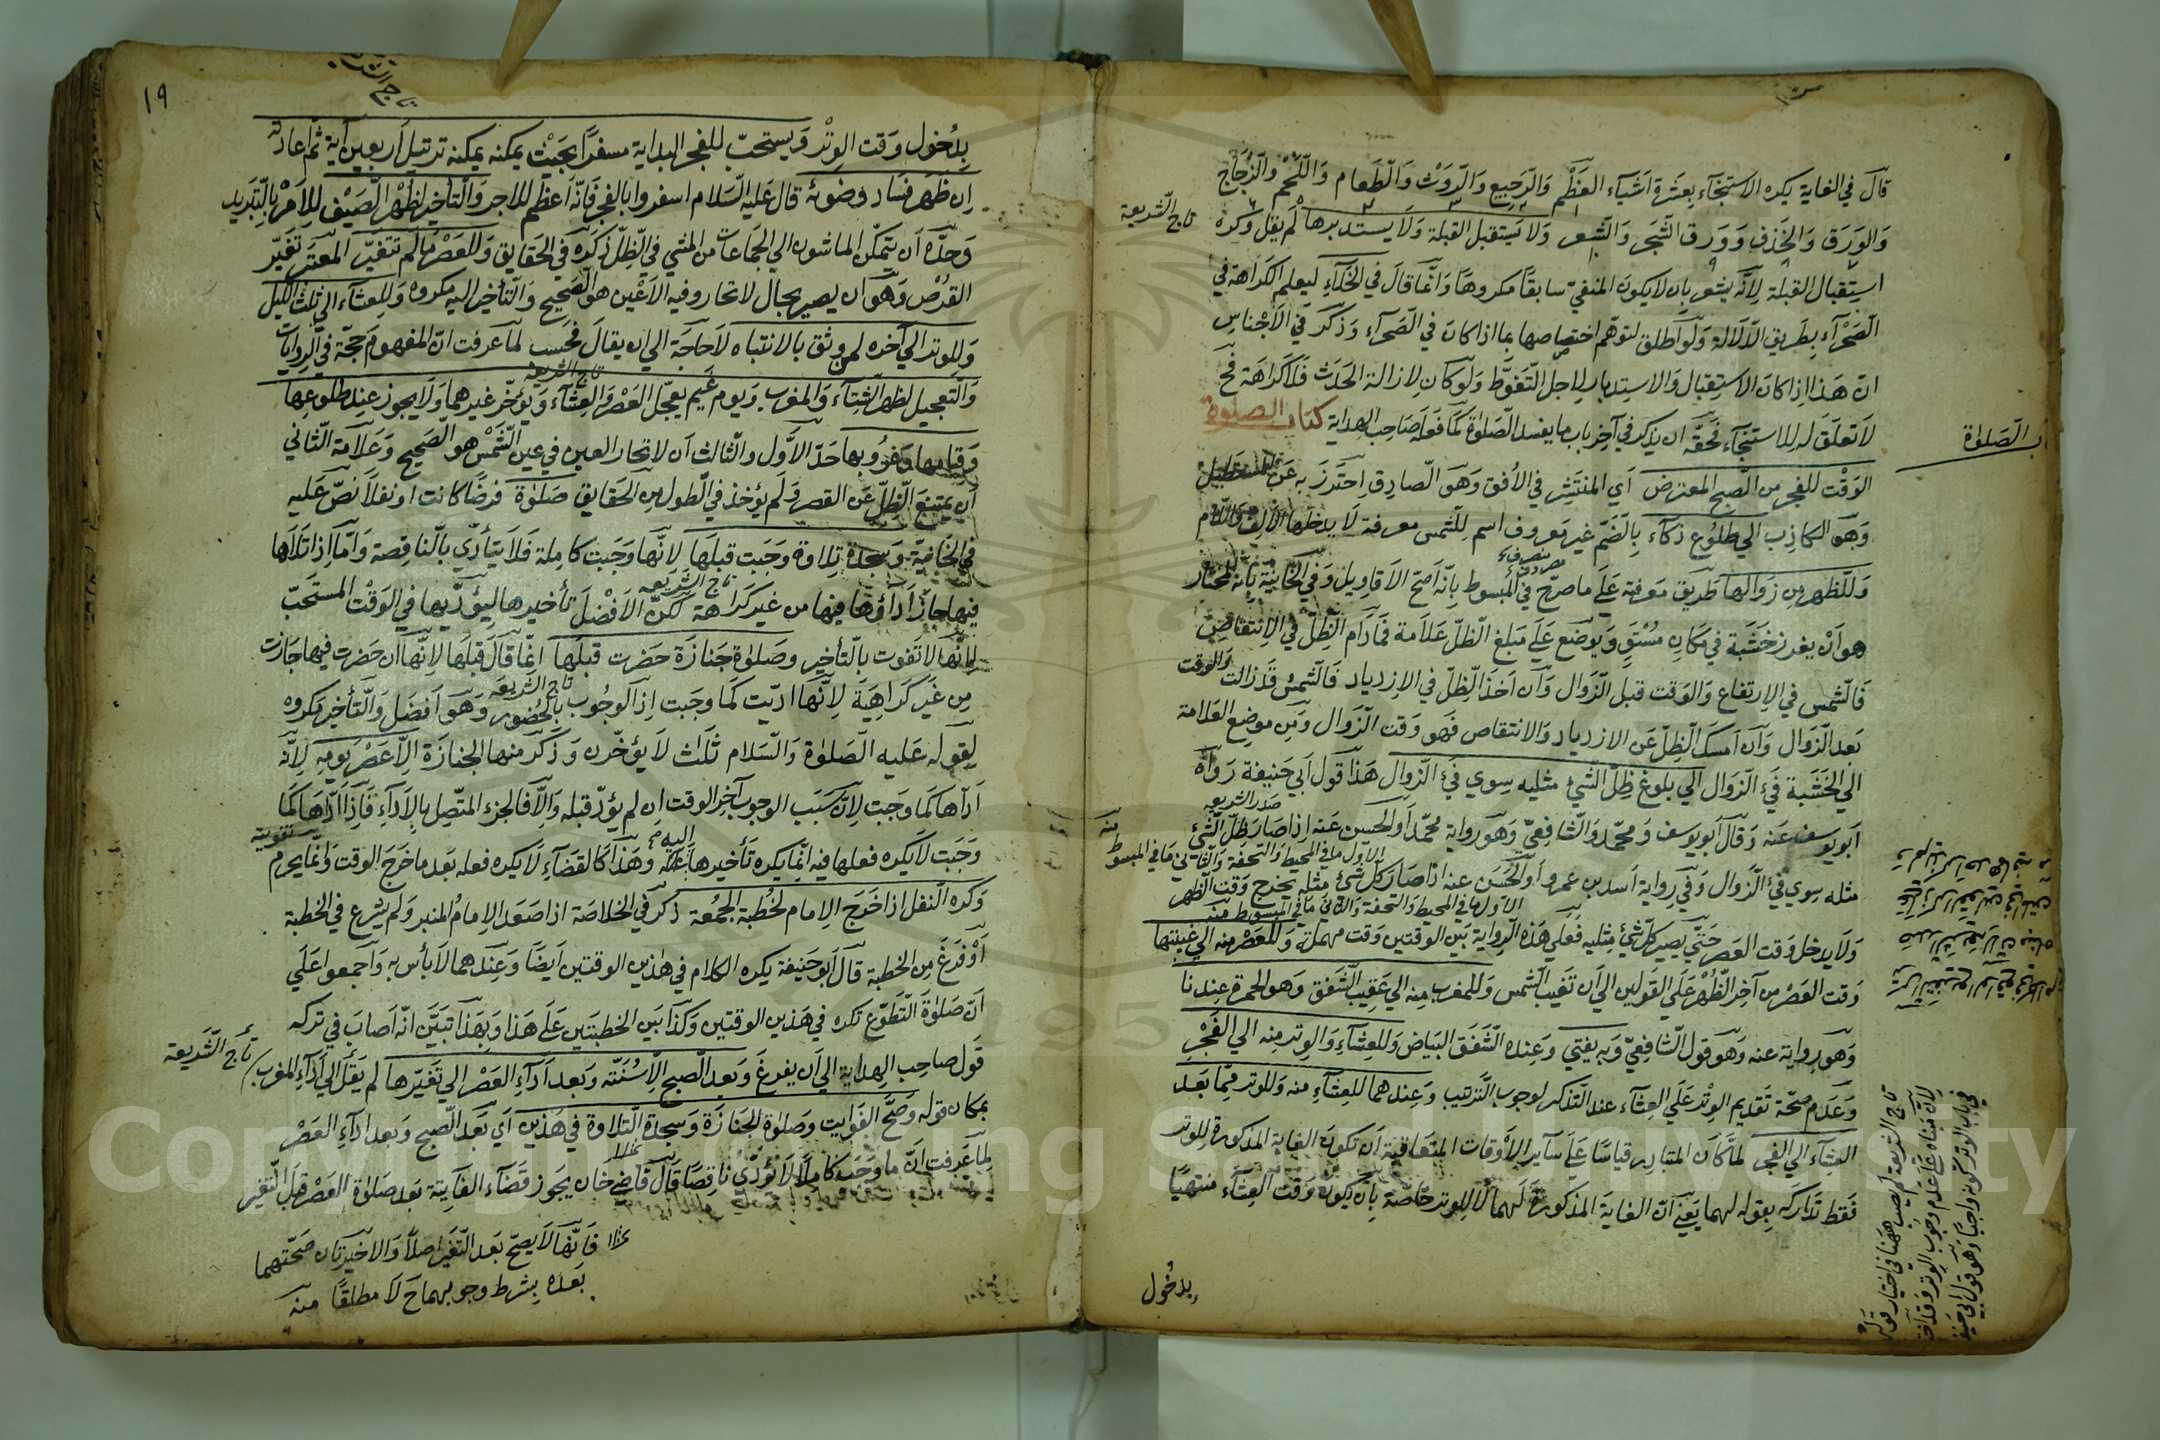 قال في الغاية يكره الاستنجاء بعشرة اشياء العظم والرجيع والروث والطعام واللحم والزجاج
والورق والخزف وورق الشجر والشعر ولا يستقبل القبلة ولا يستدبرها لم يقل وكره
تاج الشريعة
استقبال القبلة لانه يشعر بان لا يكون المنفي سابقا مكروها وانما قال في الخلاء ليعلم الكراهة في
الصحراء بطريق الدلالة ولو اطلق لتوهم اختصاصها بما اذا كان في الصحراء وذكر في الاجناس
ان هذا اذا كان الاستقبال والاستدبار لاجل التغوط ولو كان لازالة الحدث فلا كراهة فح
لا تعلق له للاستنجاء فحقه ان يذكر في آخر باب ما يفسد الصلوة كما فعله صاحب الهداية كتاب الصلوة
الصلوة
الوقت للفجر من الصبح المعترض اي المنتشر في الافق وهو الصادق احترز به عن المستطيل
وهو الكاذب الي طلوع ذكاء بالضم غير معروف اسم للشمس معرفة لا يدخلها الالف واللام
وللظهر من زوالها طريق معرفته علي ما صرح في المبسوط بانه اصح الاقاويل وفي الخانية بانه المختار
هو ان يغرز خشبة في مكان مستو ويوضع علي مبلغ الظل علامة فما دام الظل في الانتقاص
فالشمس في الارتفاع والوقت قبل الزوال وان اخذ الظل في الازدياد فالشمس قد زالت والوقت
بعد الزوال وان امسك الظل عن الازدياد والانتقاص فهو وقت الزوال ومن موضع العلامة
الي الخشبة فيء الزوال الي بلوغ ظل الشيء مثليه سوي فيء الزوال هذا قول ابي حنيفة رواه
صدر الشريعة
ابو يوسف عنه وقال ابو يوسف ومحمد والشافعي وهو رواية محمد او الحسن عنه اذا صار ظل الشيء
مثله سوي فيء الزوال وفي رواية اسد بن عمرو او الحسن عنه اذا صار كل شيء مثله يخرج وقت الظهر
الاول ما في المحيط والتحفة والثاني ما في المبسوط منه
ولا يدخل وقت العصر حتي يصير كل شيء مثليه فعلي هذه الرواية بين الوقتين وقت مهملة وللعصر منه الي غيبتها
وقت العصر من آخر الظهر علي القولين الي ان تغيب الشمس وللمغرب منه الي عقيب الشفق وهو الحمرة عندنا
وهو رواية عنه وهو قول الشافعي وبه يفتي وعنده الشفق البياض وللعشاء والوتر منه الي الفجر
وعدم صحة تقديم الوتر علي العشاء عند التذكر لوجوب الترتيب وعندهما للعشاء منه وللوتر فيما بعد
العشاء الي الفجر لما كان المتبادر قياسا علي سائر الاوقات المتعاقبة ان تكون الغاية المذكورة للوتر
فقط تداركه بقوله لهما يعني ان الغاية المذكورة لهما لا للوتر خاصة بان يكون وقت العشاء منتهيا
بدخول
١٩
بدخول وقت الوتر ويستحب للفجر البداية مسفرا بحيث يمكنه يمكنه ترتيل اربعين آية ثم اعادته
ان ظهر فساد وضوئه قال عليه السلام اسفروا بالفجر فانه اعظم للاجر والتأخير لظهر الصيف للامر بالتبريد
وحده ان يتمكن الماشون الي الجماعات من المشي في الظل ذكره في الحقايق وللعصر ما لم تتغير المعتبر تغير
القرص وهو ان يصير بحال لا تحار فيه الاعين هو الصحيح والتأخير اليه مكروه وللعشاء الي ثلث الليل
وللوتر الي آخره لمن وثق بالانتباه لا حاجة الي ان يقال فحسب لما عرفت ان المفهوم حجة في الروايات
تاج الشريعة
والتعجيل لظهر الشتاء والمغرب ويوم غيم يعجل العصر والعشاء ويؤخر غيرهما ولا يجوز عند طلوعها
وقيامها وغروبها حد الاول والثالث ان لا تحار العين في عين الشمس هو الصحيح وعلامة الثاني
ان يمتنع الظل عن القصر ولم يؤخذ في الطول من الحقايق صلوة فرضا كانت او نفلا نص عليه
في الخانية وسجدة تلاوة وجبت قبلها لانها وجبت كاملة فلا يتأدي بالناقصة واما اذا تلاها
فيها جاز اداؤها فيها من غير كراهة لكن الافضل تأخيرها ليؤديها في الوقت المستحب
تاج الشريعة
لانها لا تفوت بالتأخير وصلوة جنازة حضرت قبلها انما قال قبلها لانها ان حضرت فيها جازت
من غير كراهية لانها اديت كما وجبت اذ الوجوب بالحضور وهو افضل والتأخير مكروه
تاج الشريعة
لقوله عليه الصلوة والسلام ثلاث لا يؤخرن وذكر منها الجنازة الا عصر يومه لانه
اداها كما وجبت لان سبب الوجوب آخر الوقت ان لم يؤد قبله والا فالجزء المتصل بالاداء فاذا اداها كما
وجبت لا يكره فعلها فيه انما يكره تأخيرها اليه وهذا كالقضاء لا يكره فعله بعد ما خرج الوقت وانما يحرم تفويته
وكره النفل اذا خرج الامام لخطبة الجمعة ذكر في الخلاصة اذا صعد الامام المنبر ولم يشرع في الخطبة
او فرغ من الخطبة قال ابو حنيفة يكره الكلام في هذين الوقتين ايضا وعندهما لا بأس به واجمعوا علي
ان صلوة التطوع تكره في هذين الوقتين وكذا بين الخطبتين علي هذا وبهذا تبين انه اصاب في تركه
قول صاحب الهداية الي ان يفرغ وبعد الصبح الا سنته وبعد اداء العصر الي تغيرها لم يقل الي اداء المغرب
تاج الشريعة
بمكان قوله وصح الفوايت وصلوة الجنازة وسجدة التلاوة في هذين اي بعد الصبح وبعد اداء العصر
لما عرفت ان ما وجب كاملا لا تؤدي ناقصا قال قاضي خان يجوز قضاء الفايتة بعد صلوة العصر قبل التغير
فانها لا يصح بعد التغير اصلا والاخيرتان صحتهما
بعده بشرط وجوبهما ح لا مطلقا منه
Copyright © King Saud University